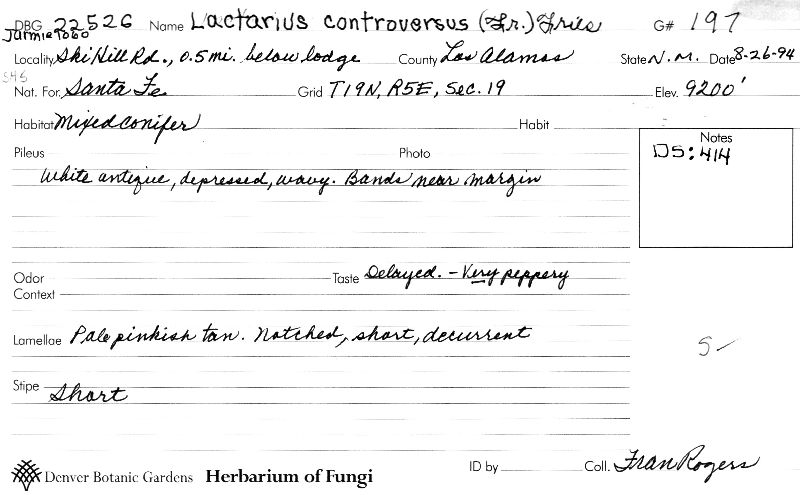 DBG 22526 Name Lactarius controversus (Fr.) Fries G# 197
Locality Ski Hill Rd., 0.5 mi. below lodge County Los Alamos State N.M. Date 8-26-94
Nat. For. Santa Fe Grid T19N, R5E, Sec. 19 Elev. 9200'
Habitat Mixed conifer Habit
Notes
DS: 414
Pileus Photo
White antique, depressed, wavy. Bands near margin
Odor Taste Delayed. - Very peppery
Context
Lamellae Pale pinkish tan. Notched, short, decurrent
5-
Stipe Short
Denver Botanic Gardens Herbarium of Fungi ID by Coll. Fran Rogers